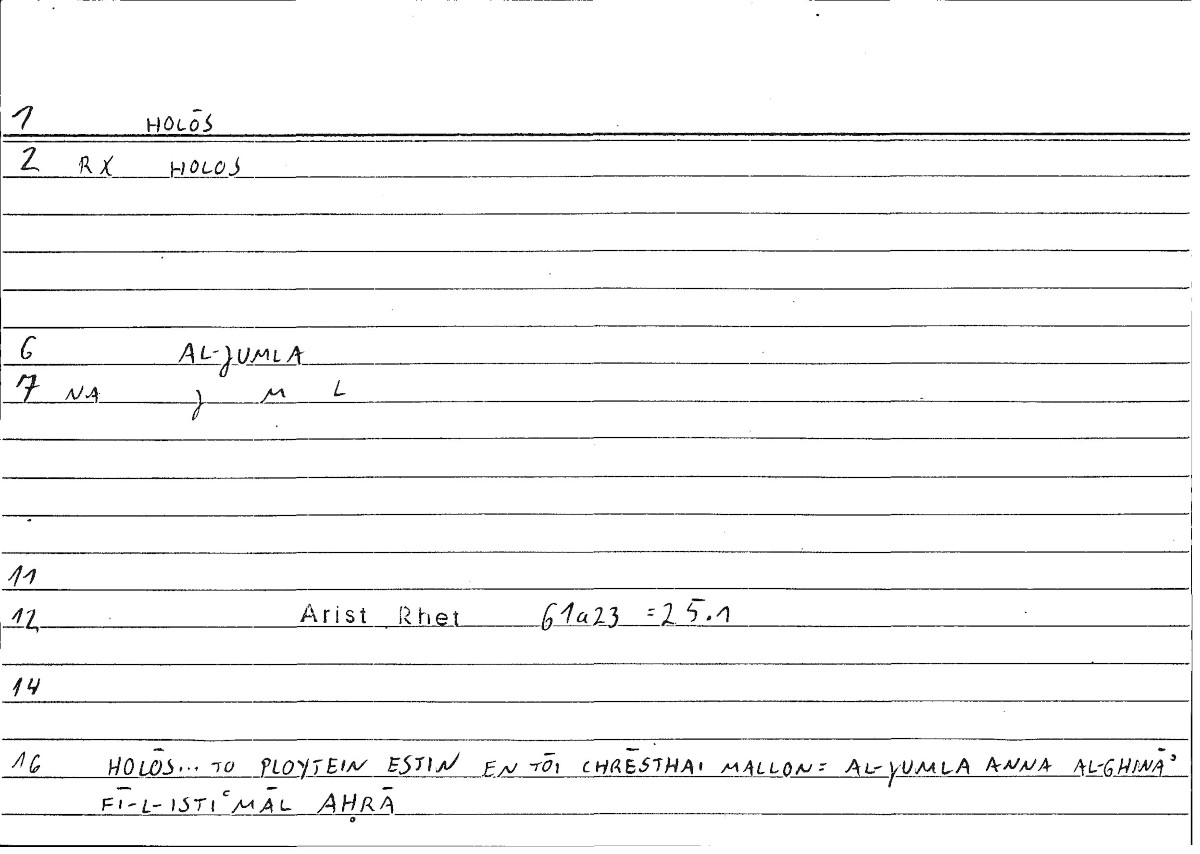 1 HOLŌS
2 RX HOLOS
6 AL-JUMLA
7 NA J M L
11
12 Arist Rhet 61a23 = 25.1
14
16 HOLŌS... TO PLOYTEIN ESTIN EN TŌI CHRĒSTHAI MALLON = AL-JUMLA ANNA AL-GHINĀʾ
FĪ-L-ISTIʿMĀL AḤRĀ